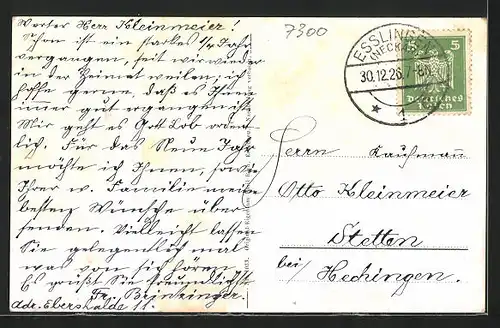 Werter Herr Kleinmeier!
Schon ist ein starkes 1/2 Jahr
vergangen, seit wir wieder
in der Heimat weilen; ich
hoffe gerne, daß es Ihnen
immer gut ergangen ist
Mir geht es Gott Lob ordent-
lich. Für das Neue Jahr
möchte ich Ihnen, sowie
Ihrer w. Familie meine
besten Wünsche über-
senden. Vielleicht lassen
Sie gelegentlich mal
was von sich hören.
Es grüßt Sie freundlichst
Fr.
Adr. Ebershalde 11.
7300
ESSLINGEN
(NECKAR)
30.12.26. 7-8N
5 5
Deutsches
Reich
Herrn Kaufmann
Otto Kleinmeier
Stetten
bei Hechingen.